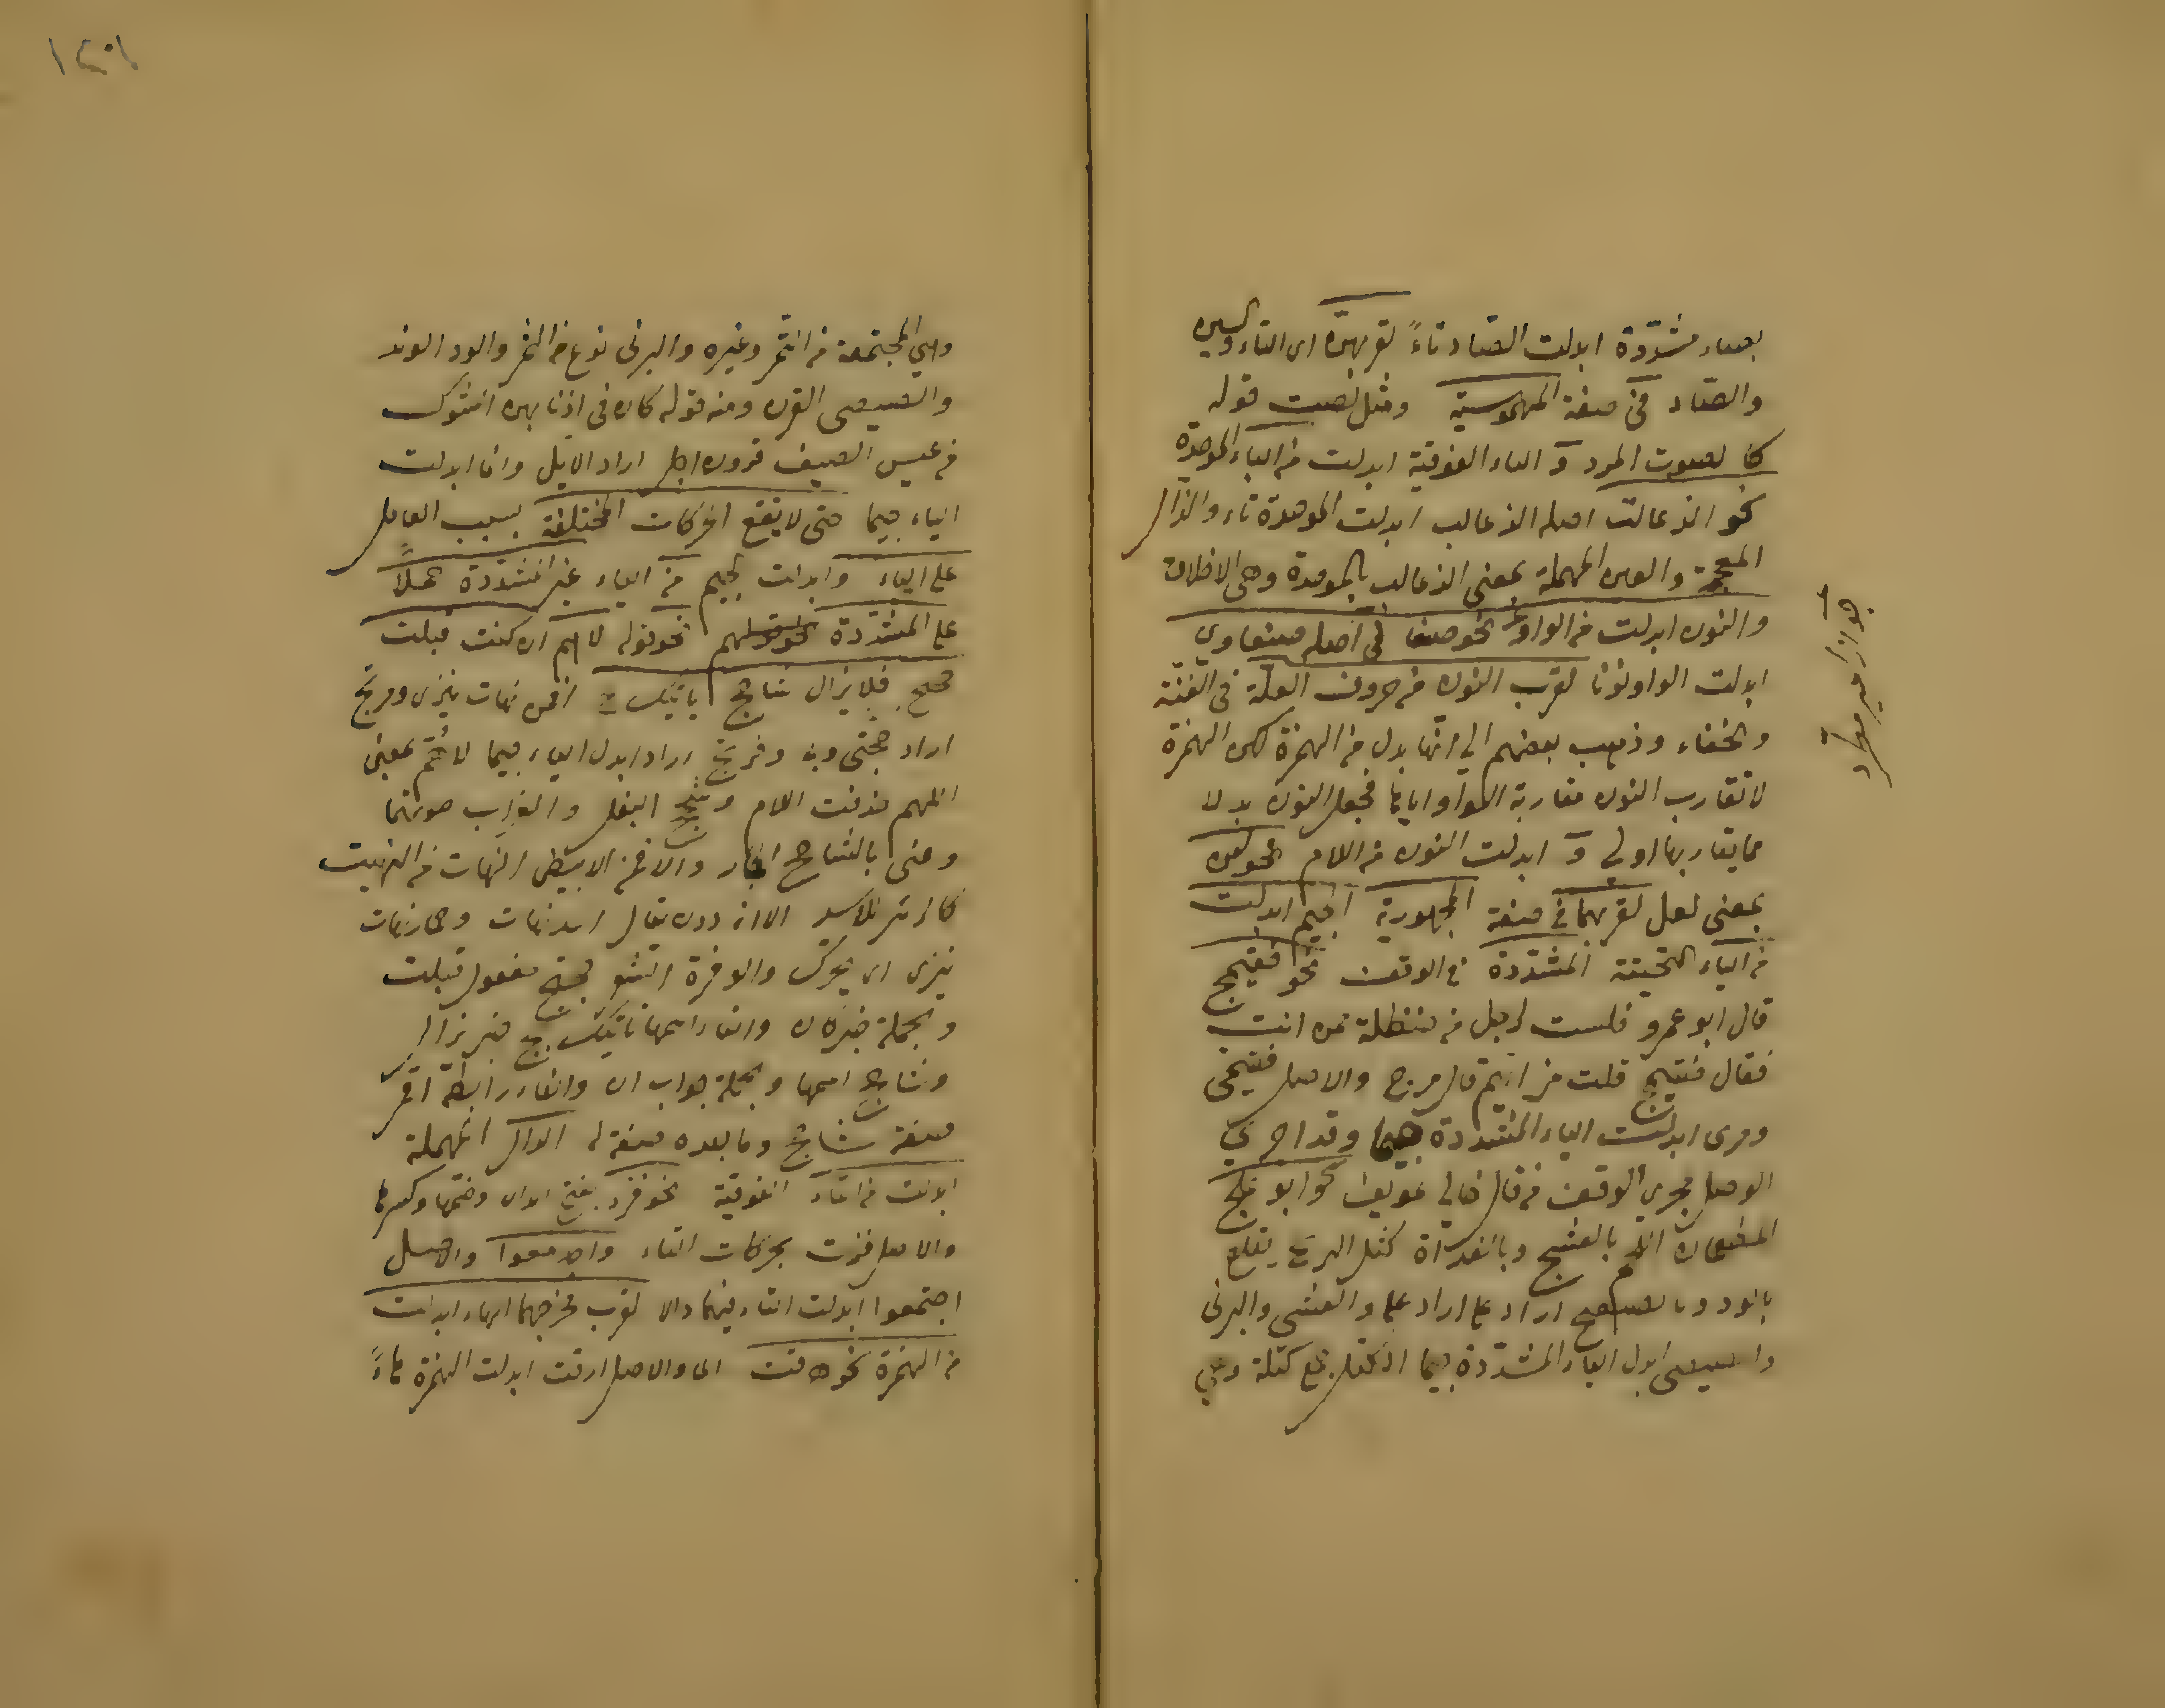 بصاد مشددة ابدلت الصاد تاءً لقربهن اى التاء والسين
والصاد فى صفة المهموسية ومثل لصت قوله
كاللصوت المرد و التاء الفوقية ابدلت من الباء الموحدة
نحو الذعالت اصله الذعالب ابدلت الموحدة تاء والذال
المعجمة والعين المهملة بمعنى الذعالب بالموحدة وهى الاخلاق
والنون ابدلت من الواو نحو صنعانى اصله صنعاوي
ابدلت الواو نونا لقرب النون من حروف العلة فى الغنة
والخفاء وذهب بعضهم الى انها بدل من الهمزة لكن الهمزة
لا تقارب النون مقاربة الواو اياها فجعل النون بدلا
مما يقاربها اولى و ابدلت النون من اللام نحو لعن
بمعنى لعل لقربهما فى صفة المجهورية الجيم ابدلت
من الياء التحتية المشددة فى الوقف نحو فقيمج
قال ابو عمرو قلت لرجل من حنظلة ممن انت
فقال فقيمج قلت من ايهم قال مرج والاصل فقيمى
ومرى ابدلت الياء المشددة جيما وقد اجرى
الوصل مجرى الوقف من قال خالى عويف وابو علج
المطعمان اللحم بالعشج وبالغداة كتل البرنج يقلع
بالود وبالصيصج اراد على اراد علي والعشى والبرنى
والصيصى ابدل الياء المشددة جيما الكتل جمع كتلة وهي
جواز امير مطرد
١٢٠١
وهي المجتمعة من التمر وغيره والبرنى نوع من التمر والود الوتد
والصيصى القرن ومنه قوله كان فى اذنابهن الشوك
من عبس الصيف قرون اجل اراد الايل وانما ابدلت
الياء جيما حتى لا يقع الحركات المختلفة بسبب العامل
على الياء وابدلت الجيم من الياء غير المشددة حملاً
على المشددة نحو قوله لاهم ان كنت قبلت
حجتج فلا يزال شاحج ياتيك بج اقمر نهات ينزى وفرتج
اراد حجتى وبى وفرتى اراد ابدل الياء جيما لاهم بمعنى
اللهم حذفت اللام وشحج البغل والغراب صوتهما
وعنى بالشاحج الحمار والاقمر الابيض النهات من النهيت
كالزئير للاسد الا انه دونه يقال اسد نهات وحمار نهات
ينزى اى يحرك والوفرة الشعر حجتج مفعول قبلت
والجملة خبر كان والتاء اسمها ياتيك بج خبر يزال
وشاحج اسمها والجملة جواب ان والفاء رابطة اقمر
صفة شاحج وما بعده صفة له الدال المهملة
ابدلت من التاء الفوقية نحو فزد بفتح الدال وضمها وكسرها
والاصل فزت بحركات التاء واجدمعوا والاصل
اجتمعوا ابدلت التاء فيهما دالا لقرب مخرجهما الهاء ابدلت
من الهمزة نحو هرقت الماء والاصل ارقت ابدلت الهمزة هاءً